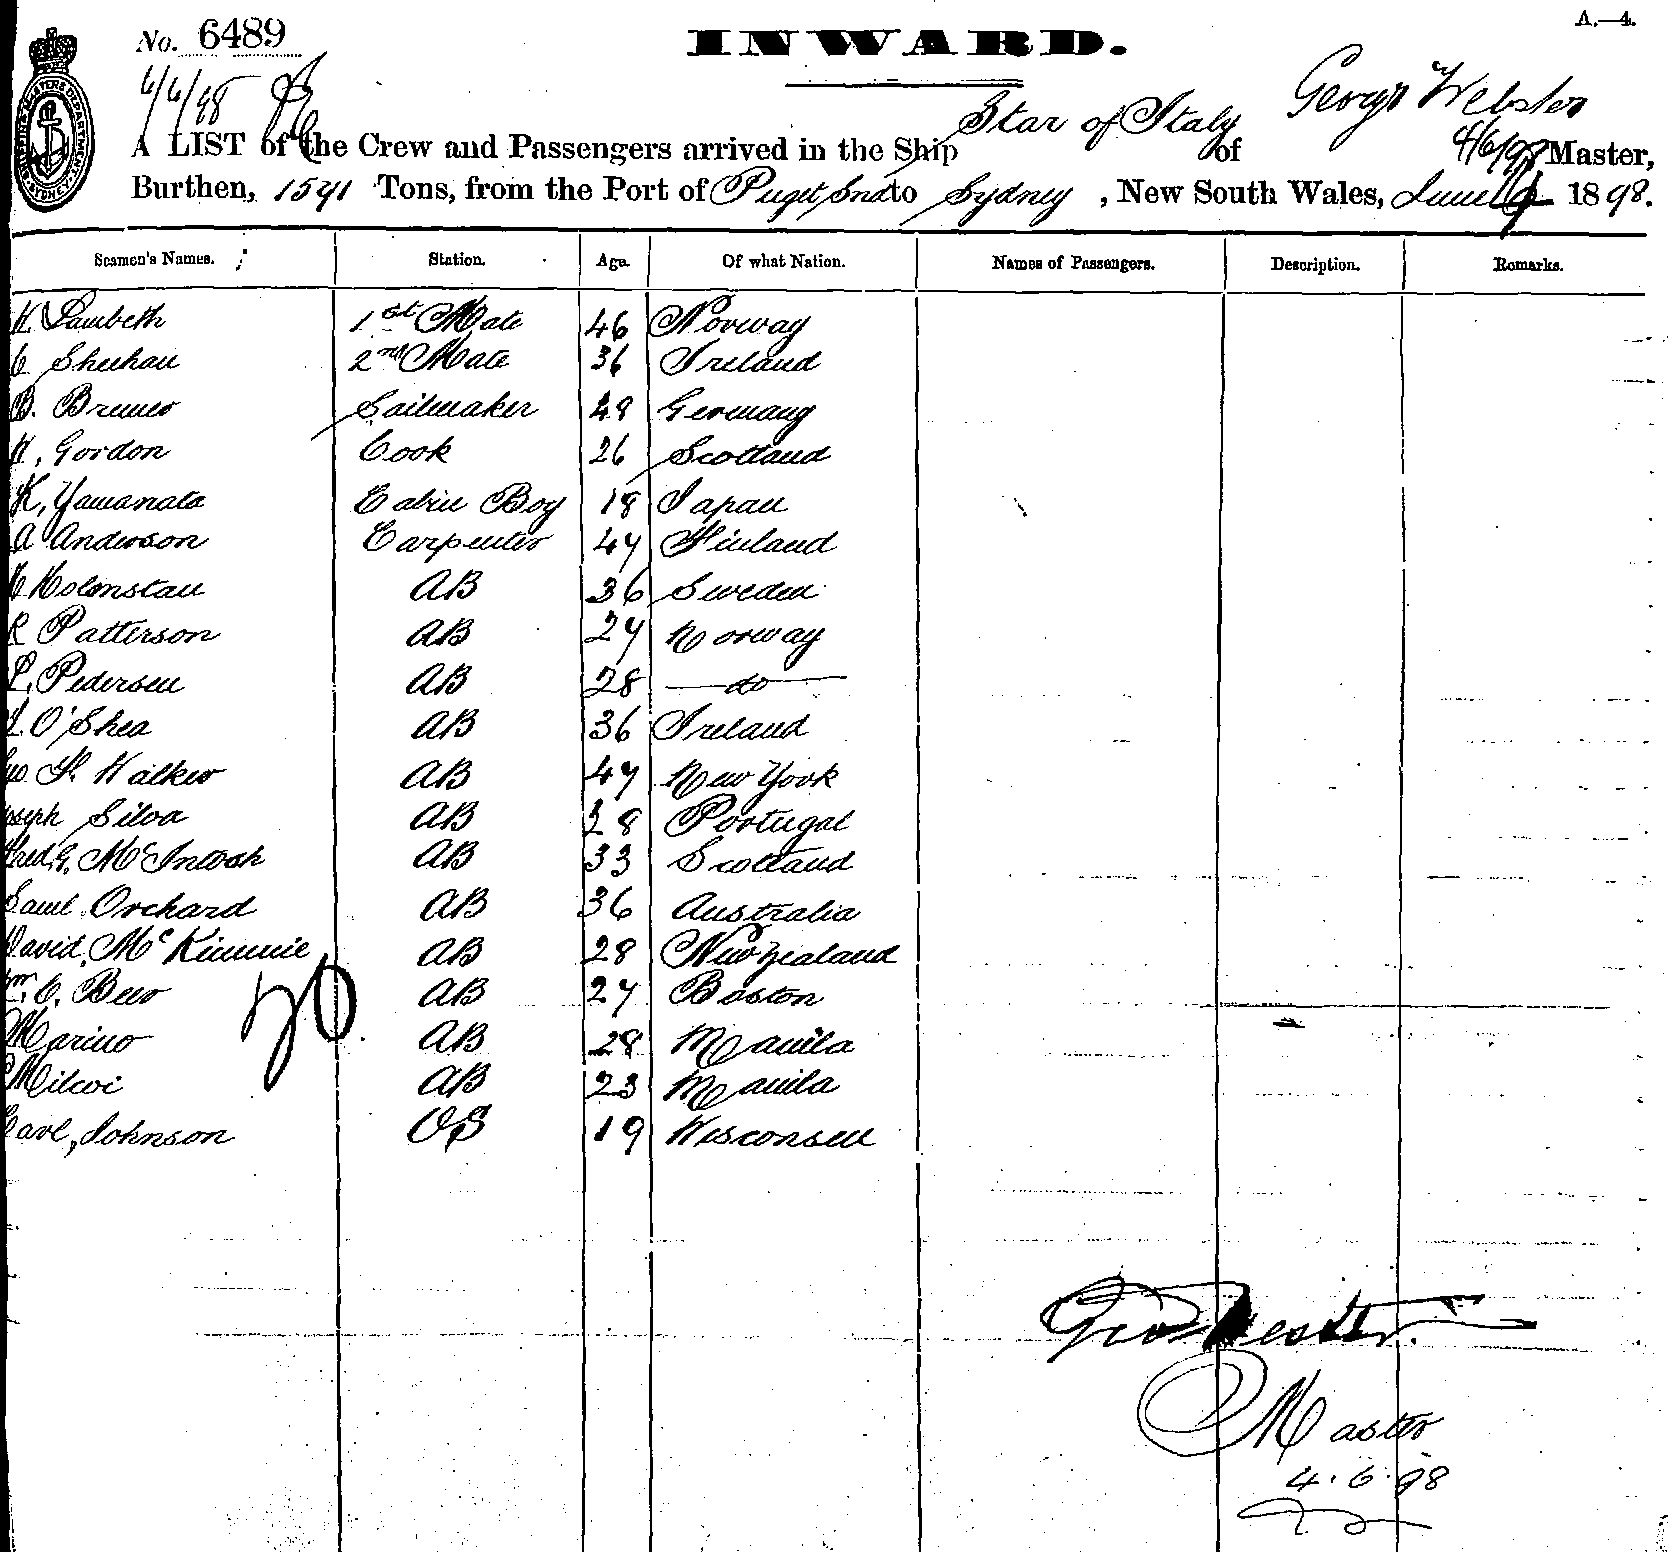 A.—4.
No. 6489
INWARD.
4/6/98
George Webster
4/6/98
A LIST of the Crew and Passengers arrived in the Ship Star of Italy of Master,
Burthen, 1541 Tons, from the Port of Puget Snd to Sydney, New South Wales, June 4 1898.
Seamen's Names. Station. Age. Of what Nation. Names of Passengers. Description. Remarks.
Lambeth 1st Mate 46 Norway
Sheehan 2nd Mate 36 Ireland
B. Bruner Sailmaker 48 Germany
Gordon Cook 26 Scotland
K, Yamanata Cabin Boy 18 Japan
A Anderson Carpenter 47 Finland
Holmstan AB 36 Sweden
R Patterson AB 27 Norway
P, Pedersen AB 28 do
O'Shea AB 36 Ireland
Walker AB 47 New York
Joseph Silva AB 38 Portugal
Fred G. McIntosh AB 33 Scotland
Saml Orchard AB 36 Australia
David, McKimmie AB 28 New Zealand
Wm. C. AB 27 Boston
Marino AB 28 Manila
AB 23 Manila
Carl, Johnson OS 19 Wisconsen
20
Geo Webster.
Master
4.6.98